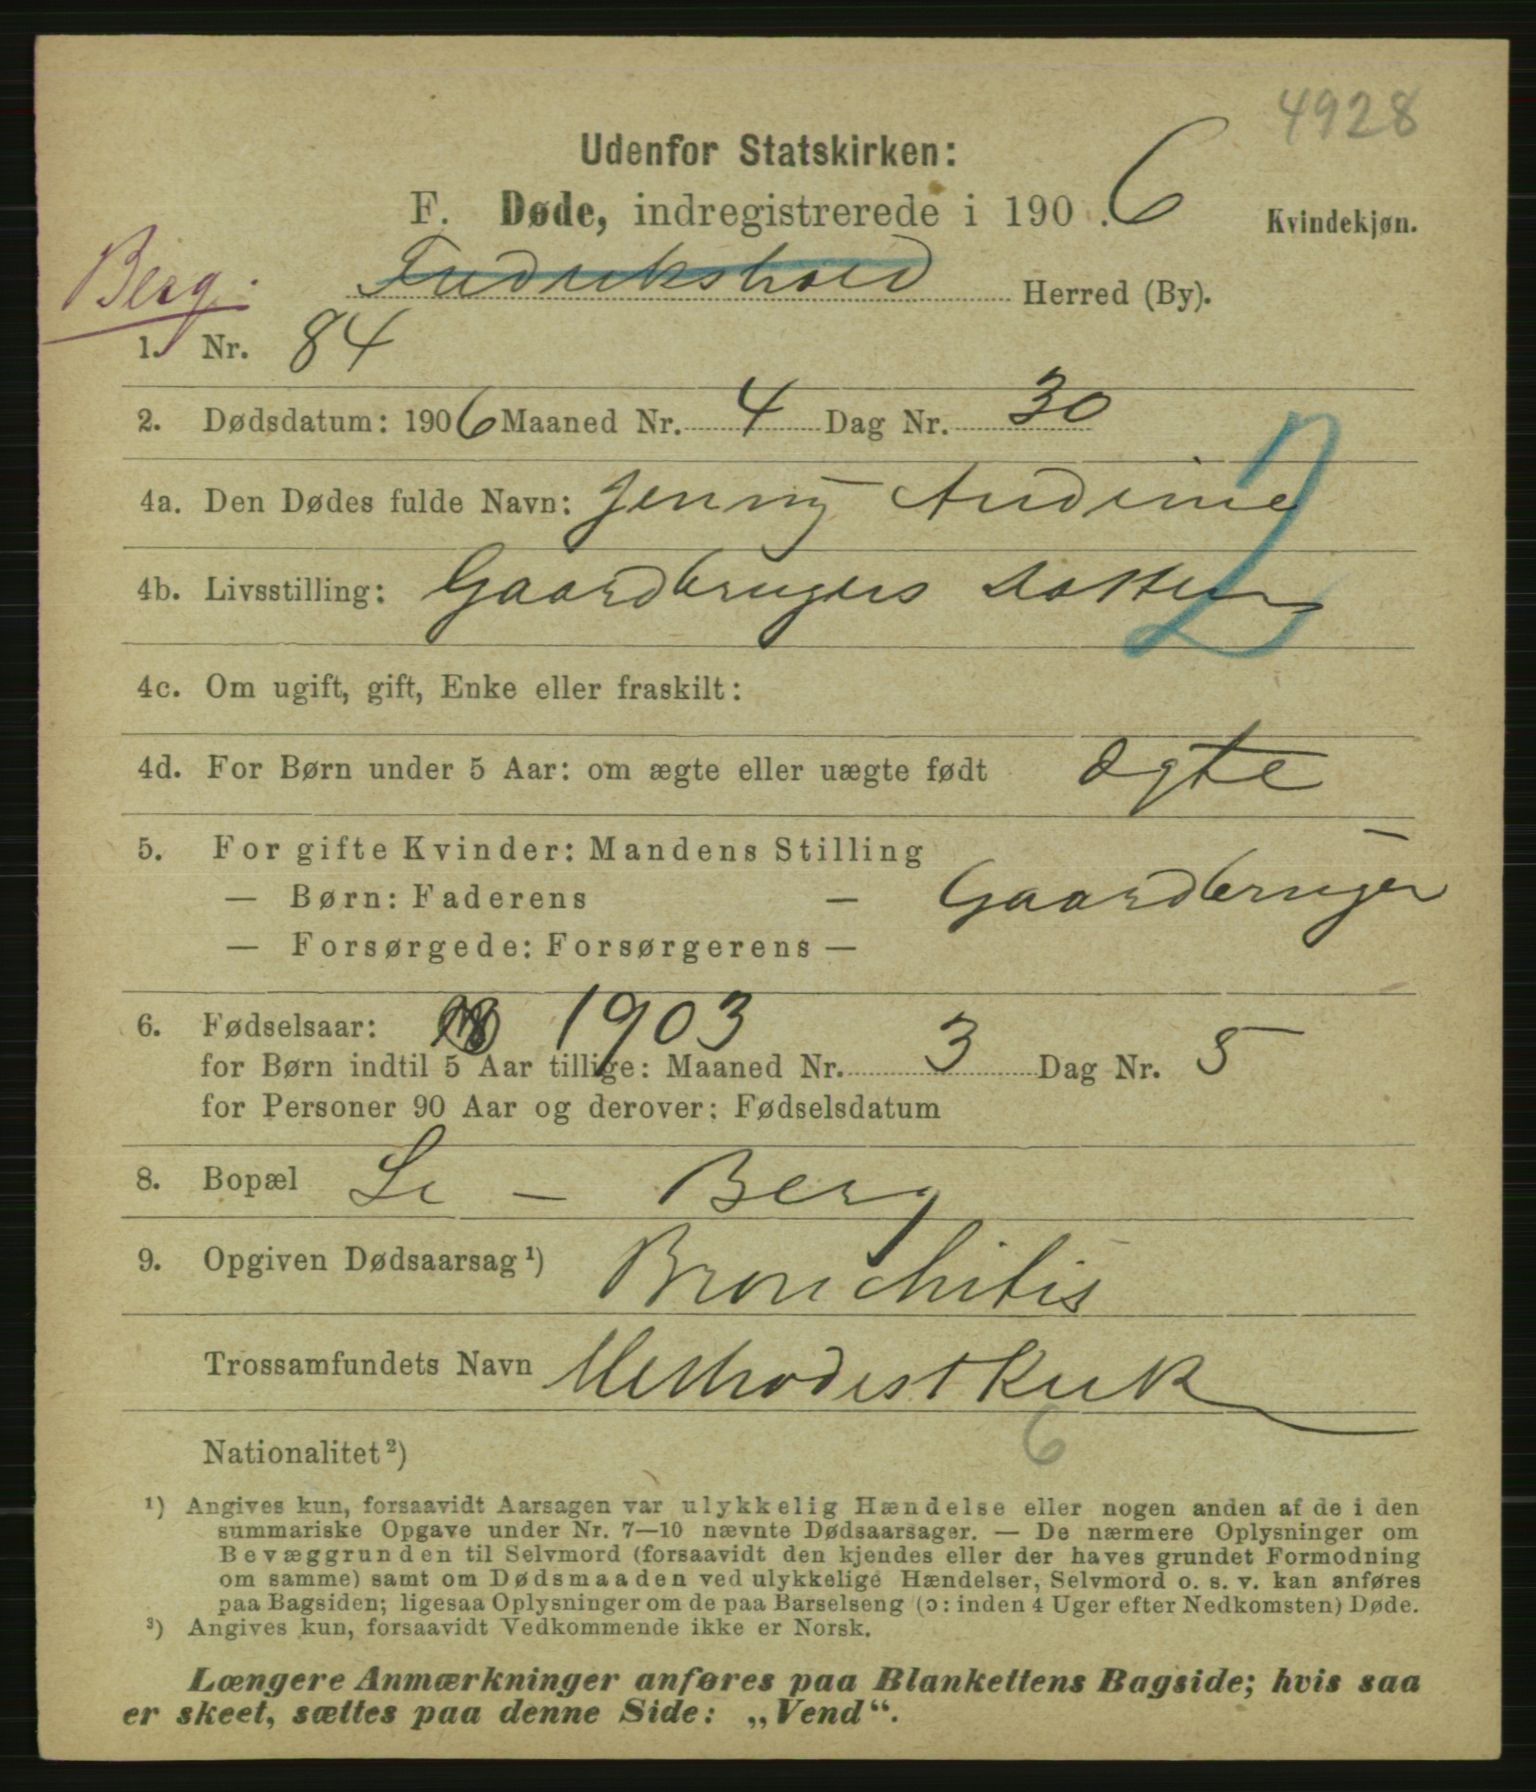 4928
Udenfor Statskirken:
F. Døde, indregistrerede i 190.6 Kvindekjøn.
Berg.
Fredrikshald Herred (By).
1. Nr. 84
2. Dødsdatum: 1906 Maaned Nr. 4 Dag Nr. 30
4a. Den Dødes fulde Navn: Jenny Andine
2
4b. Livsstilling: Gaardbrugers Datter
4c. Om ugift, gift, Enke eller fraskilt:
4d. For Børn under 5 Aar: om ægte eller uægte født ægte
5. For gifte Kvinder: Mandens Stilling
— Børn: Faderens — Gaardbruger
— Forsørgede: Forsørgerens —
6. Fødselsaar: 1903
for Børn indtil 5 Aar tillige: Maaned Nr. 3 Dag Nr. 5
for Personer 90 Aar og derover: Fødselsdatum
8. Bopæl Le - Berg
9. Opgiven Dødsaarsag ¹) Bronchitis
Trossamfundets Navn Methodistkirk
6
Nationalitet ²)
¹) Angives kun, forsaavidt Aarsagen var ulykkelig Hændelse eller nogen anden af de i den
summariske Opgave under Nr. 7—10 nævnte Dødsaarsager. — De nærmere Oplysninger om
Bevæggrunden til Selvmord (forsaavidt den kjendes eller der haves grundet Formodning
om samme) samt om Dødsmaaden ved ulykkelige Hændelser, Selvmord o. s. v. kan anføres
paa Bagsiden; ligesaa Oplysninger om de paa Barselseng (ɔ: inden 4 Uger efter Nedkomsten) Døde.
³) Angives kun, forsaavidt Vedkommende ikke er Norsk.
Længere Anmærkninger anføres paa Blankettens Bagside; hvis saa
er skeet, sættes paa denne Side: „Vend“.